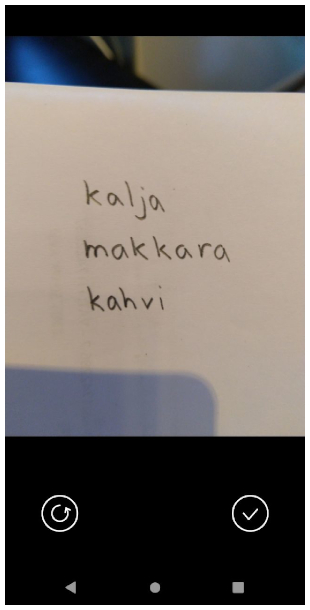 kalja
makkara
kahvi